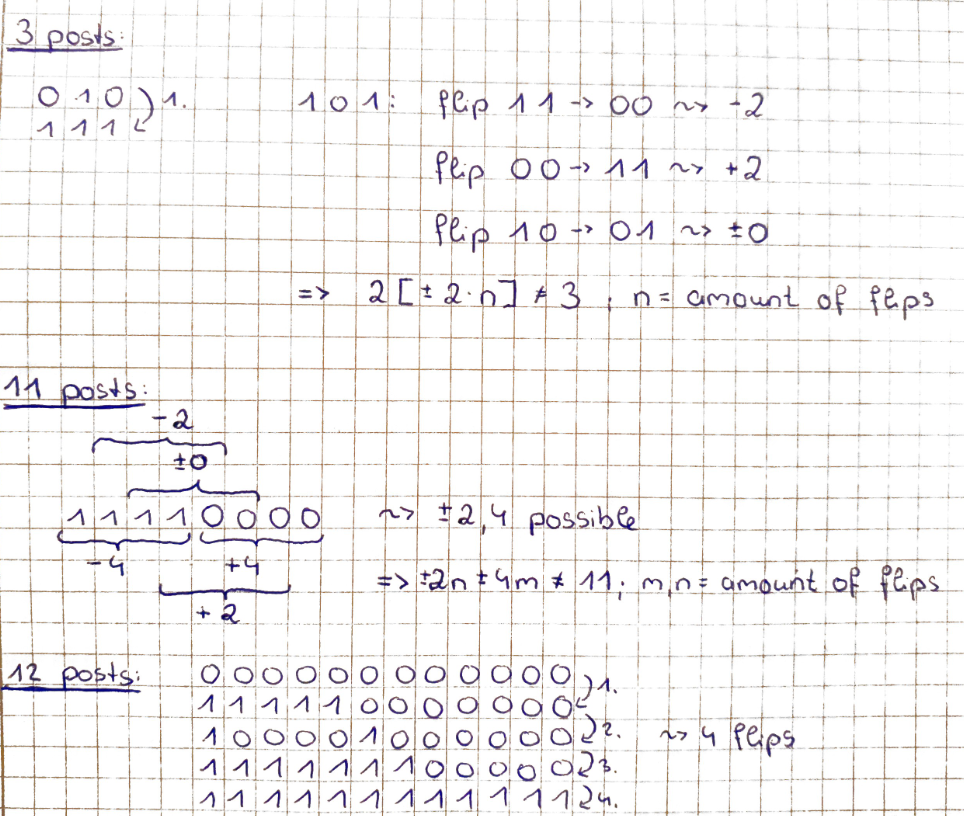 3 posts:
0 1 0 ) 1.
1 1 1
1 0 1: flip 11 -> 00 ~> -2
flip 00 -> 11 ~> +2
flip 10 -> 01 ~> ±0
=> 2 [± 2·n] ≠ 3 ; n = amount of flips
11 posts:
-2
±0
1 1 1 1 0 0 0 0 ~> ±2,4 possible
-4 +4
=> ±2n ± 4m ≠ 11; m,n = amount of flips
+2
12 posts: 0 0 0 0 0 0 0 0 0 0 0 0 ) 1.
1 1 1 1 1 0 0 0 0 0 0 0
1 0 0 0 0 1 0 0 0 0 0 0 2. ~> 4 flips
1 1 1 1 1 1 1 0 0 0 0 0 3.
1 1 1 1 1 1 1 1 1 1 1 1 4.